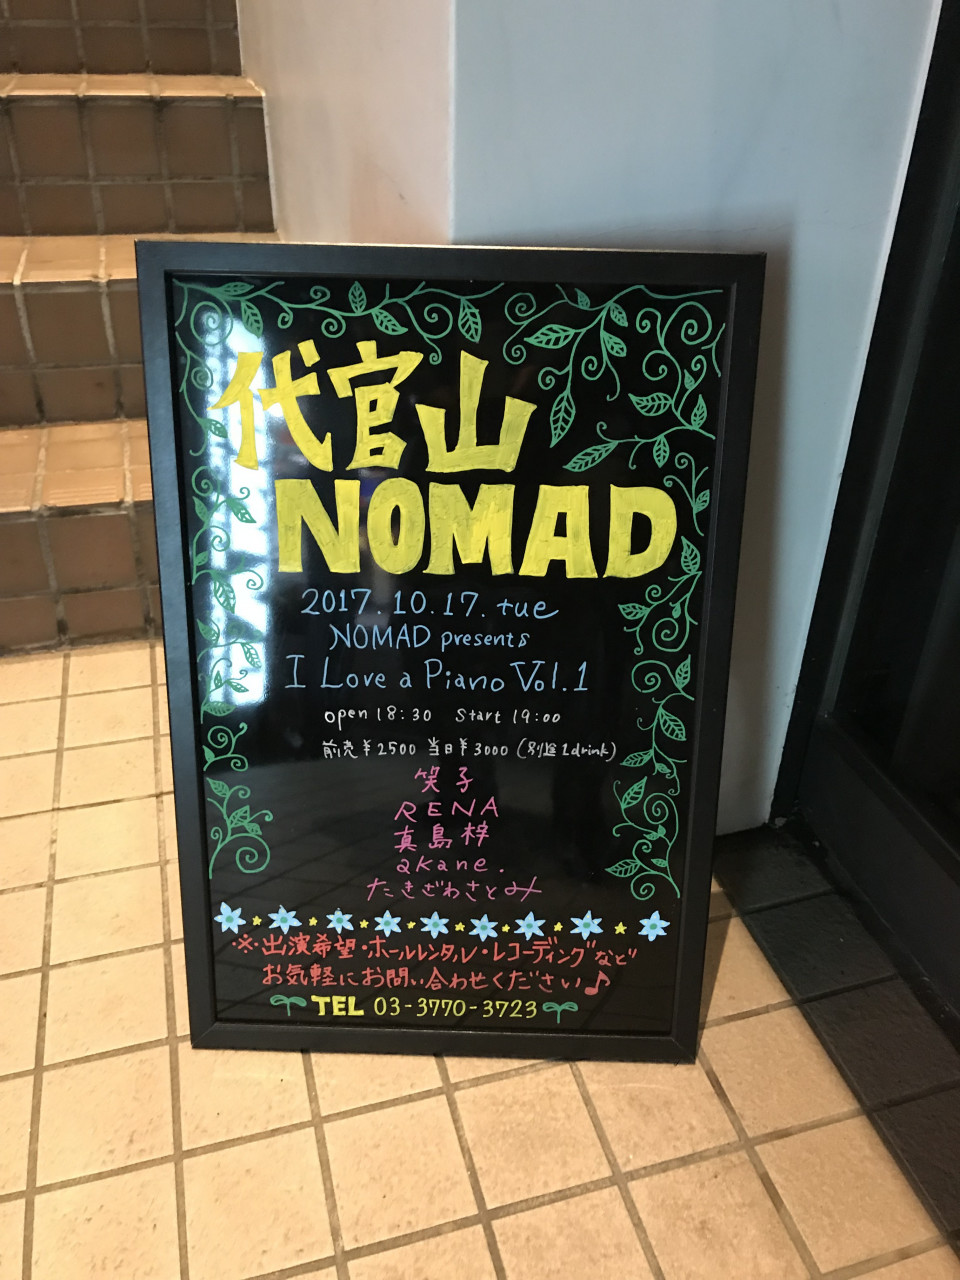 代官山
NOMAD
2017.10.17.tue
NOMAD presents
I Love a Piano Vol.1
open 18:30 Start 19:00
前売¥2500 当日¥3000 (別途1drink)
笑子
RENA
真島梓
akane.
たきざわさとみ
※出演希望・ホールレンタル・レコーディングなど
お気軽にお問い合わせください♪
TEL 03-3770-3723